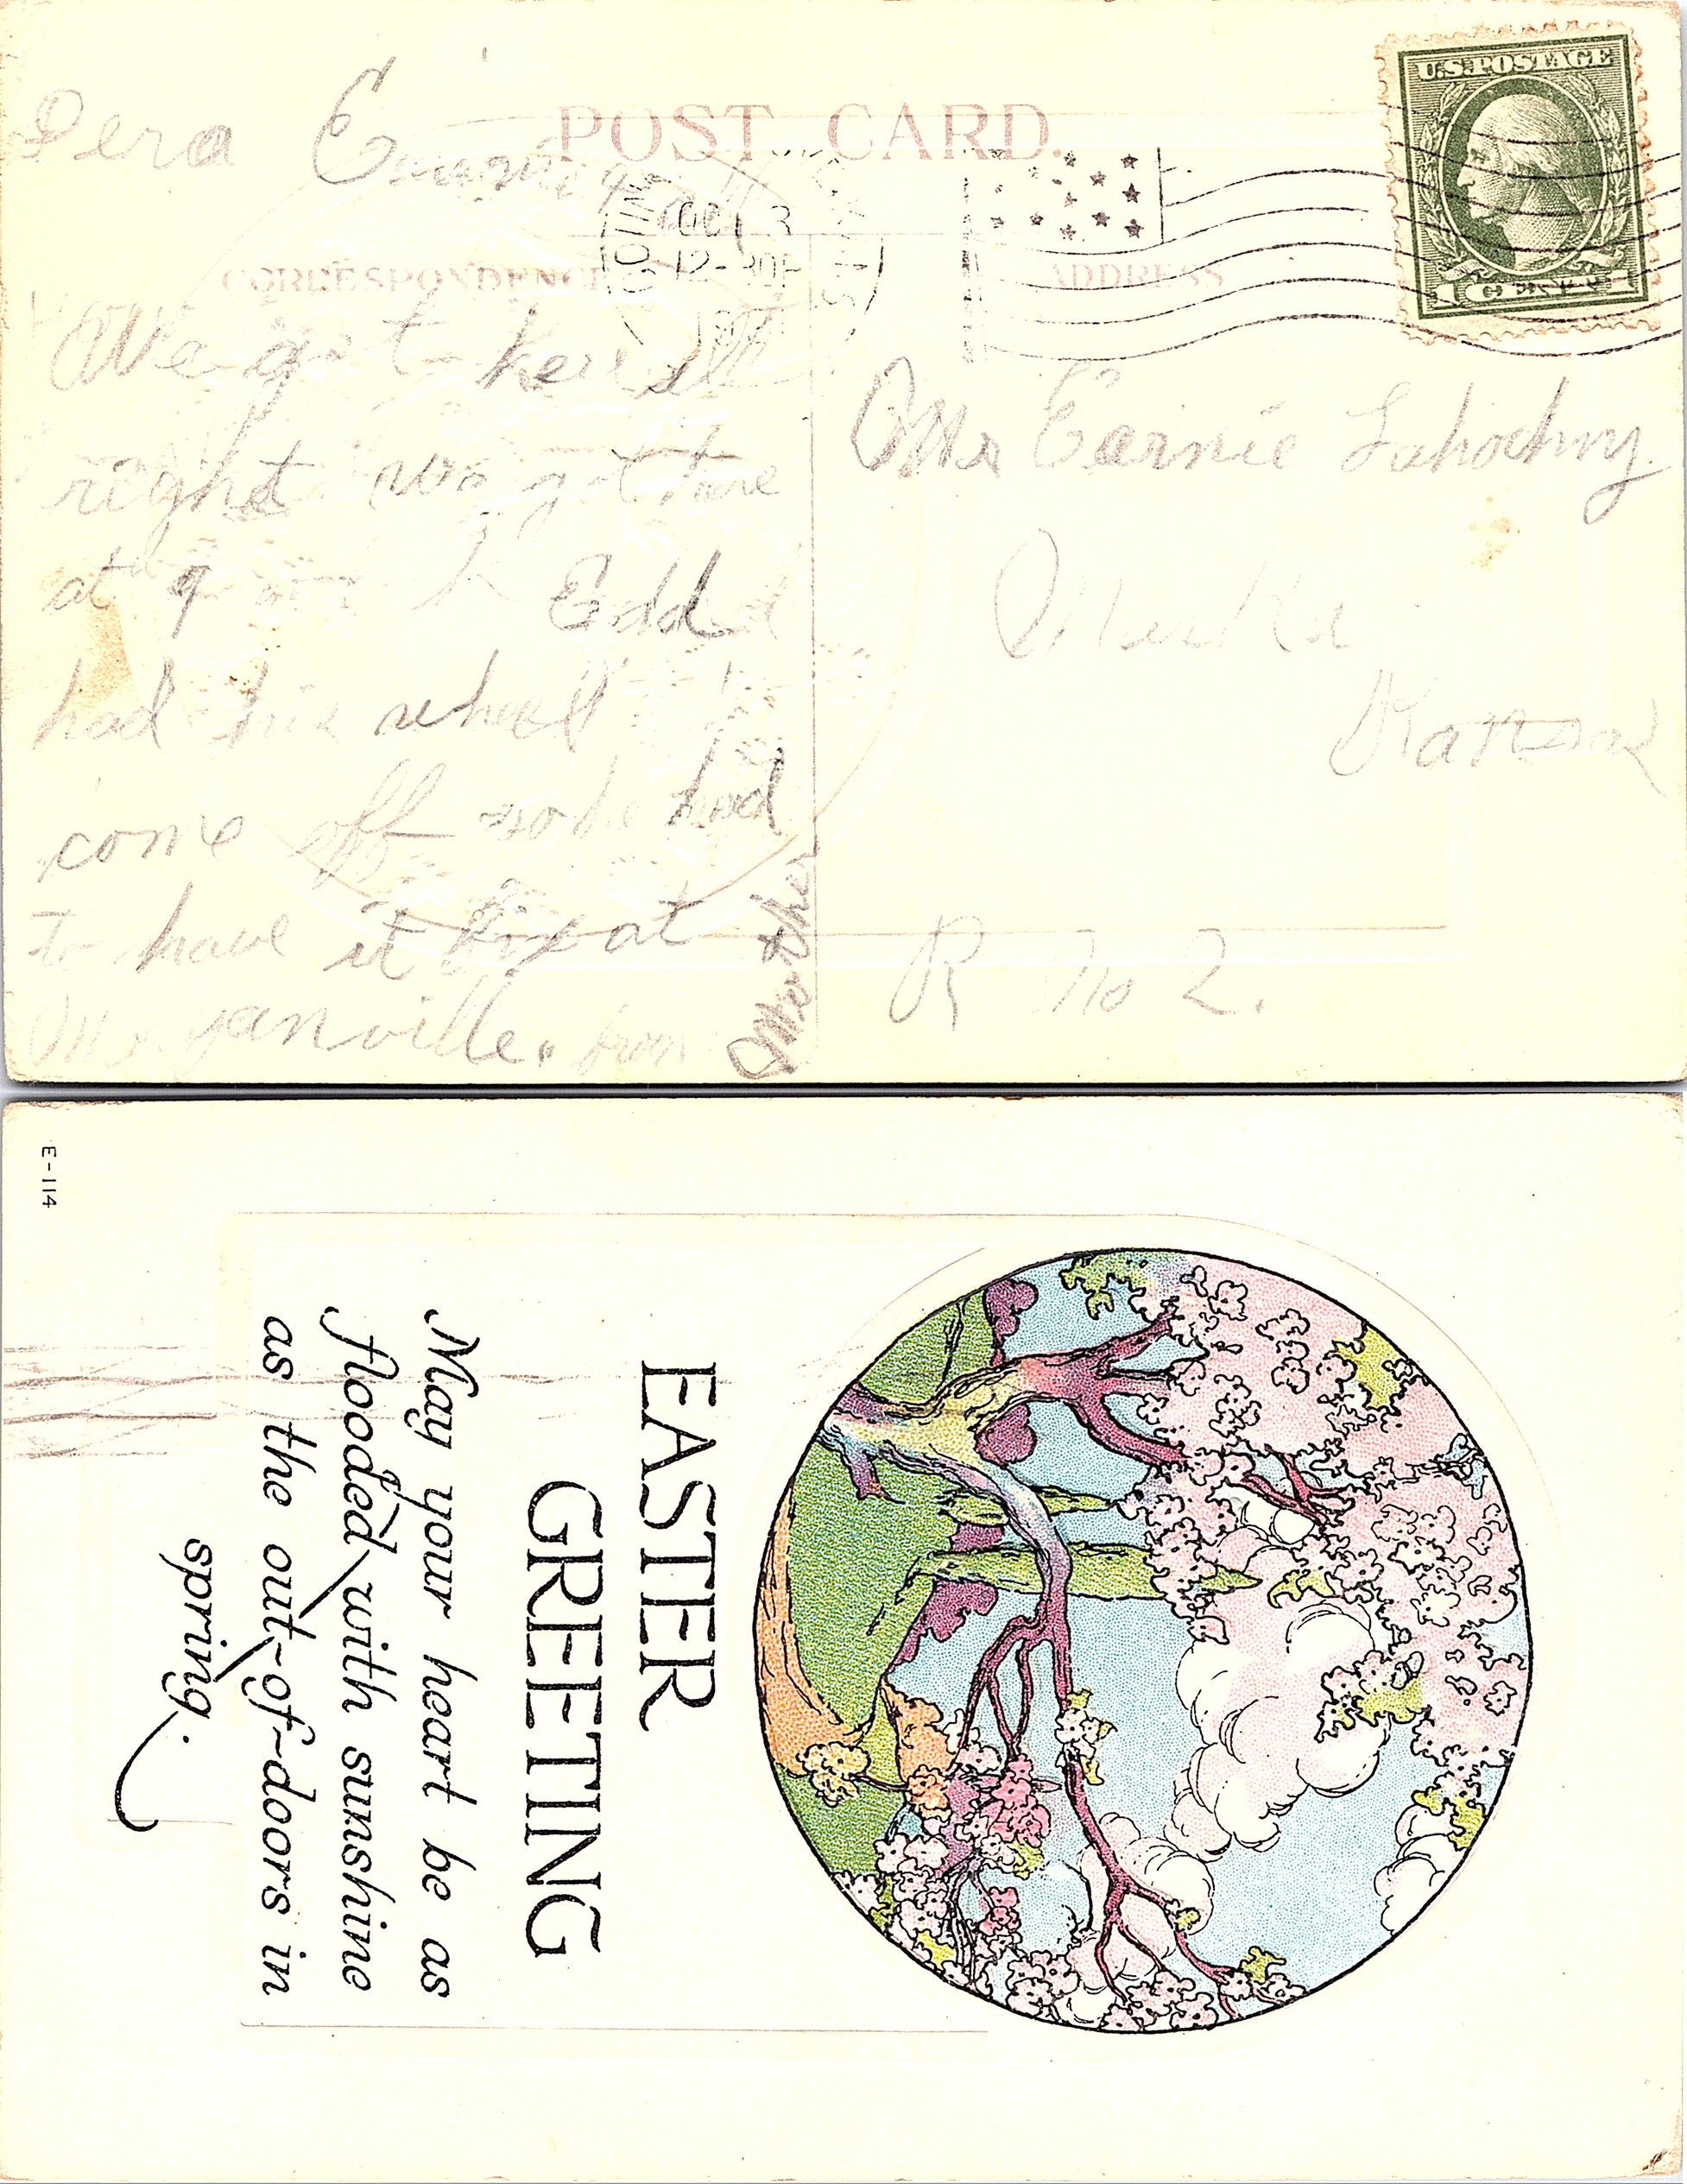 POST CARD.
U.S. POSTAGE
1
OCT 3
12-30P
CORRESPONDENCE
ADDRESS
Dera
We got here all
right we got here
at 9 Edd
had his wheel
come off so he had
to have it fix at
Morganville. from
Mother
Mr Earnie Lahodny
Munden
Kansas
R No 2.
E-114
EASTER
GREETING
May your heart be as
flooded with sunshine
as the out-of-doors in
spring.